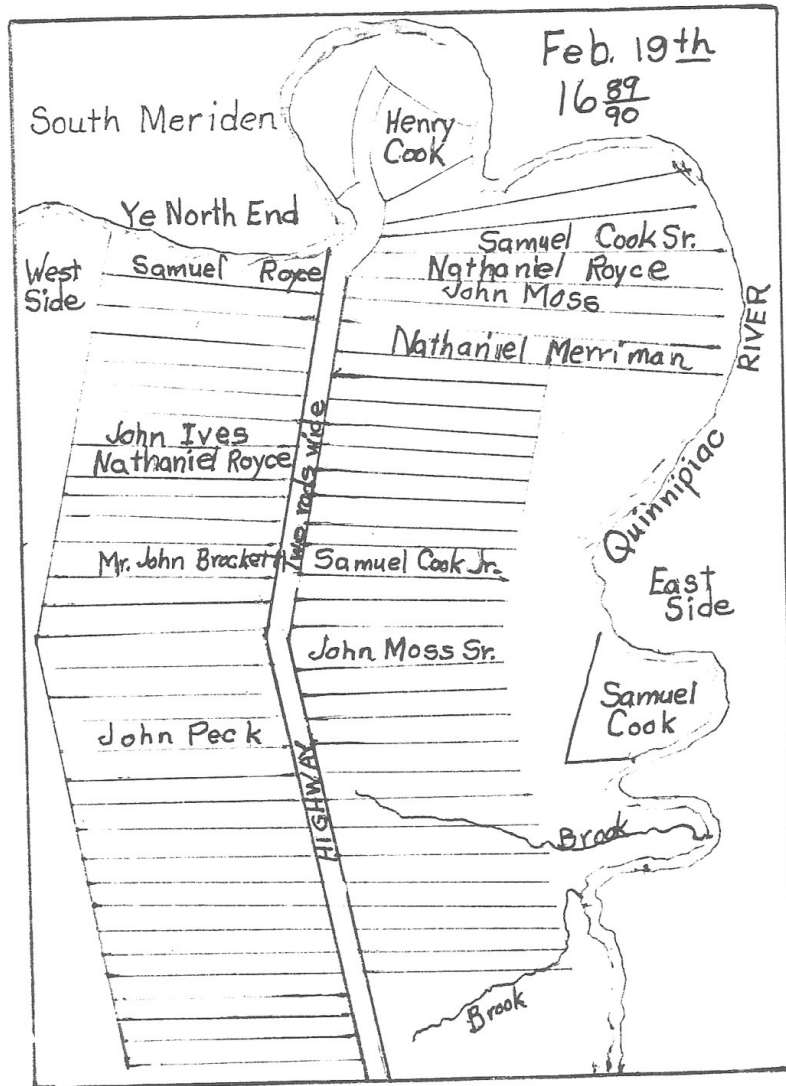 Feb. 19th
16 89/90
South Meriden
Henry
Cook
Ye North End
West
Side
Samuel Royce
Samuel Cook Sr.
Nathaniel Royce
John Moss
Nathaniel Merriman
RIVER
Quinnipiac
John Ives
Nathaniel Royce
Two rods wide
Mr. John Brockett
Samuel Cook Jr.
East
Side
John Moss Sr.
Samuel
Cook
John Peck
HIGHWAY
Brook
Brook